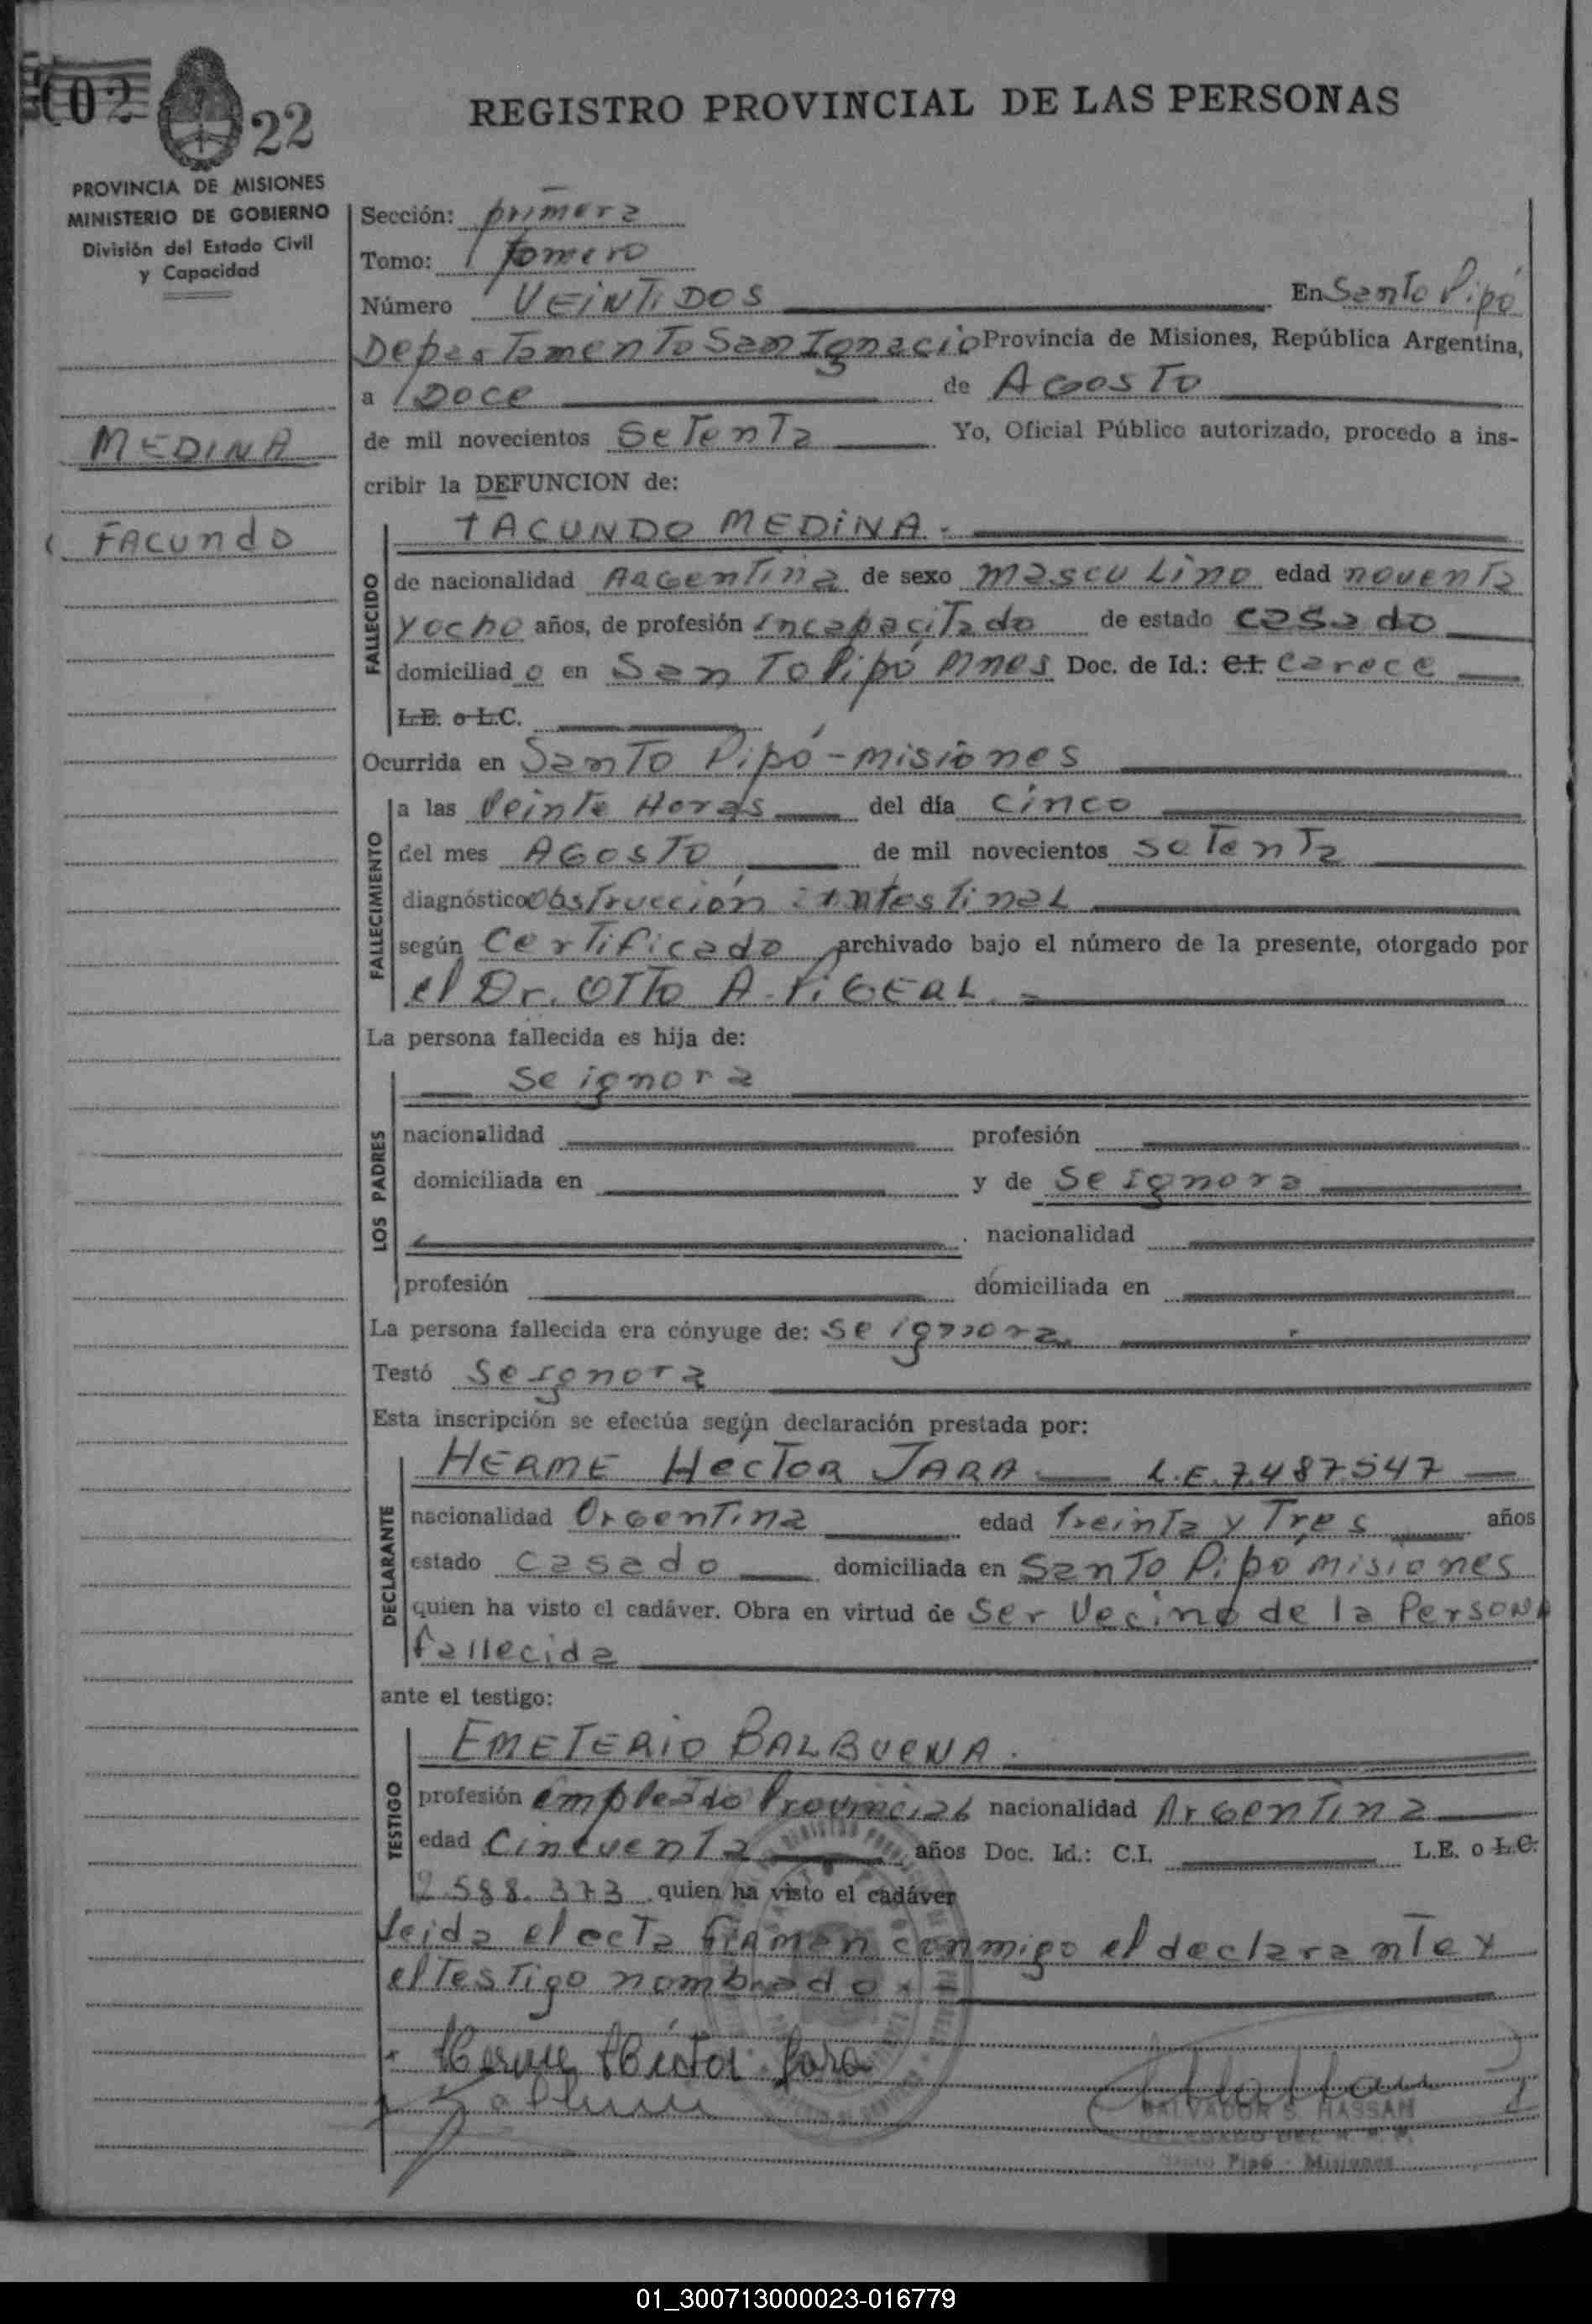 02
22
REGISTRO PROVINCIAL DE LAS PERSONAS
PROVINCIA DE MISIONES
MINISTERIO DE GOBIERNO
División del Estado Civil
y Capacidad
MEDINA
Facundo
Sección: primera
Tomo: Tomero
Número VEINTIDOS En Santo Pipó
Departamento San Ignacio Provincia de Misiones, República Argentina,
a Doce de Agosto
de mil novecientos Setenta Yo, Oficial Público autorizado, procedo a ins-
cribir la DEFUNCION de:
FALLECIDO
FACUNDO MEDINA.
de nacionalidad Argentina de sexo masculino edad noventa
y ocho años, de profesión incapacitado de estado casado
domiciliado en Santo Pipó Mnes Doc. de Id.: C.I. carece
L.E. o L.C.
Ocurrida en Santo Pipó - misiones
FALLECIMIENTO
a las Veinte Horas del día cinco
del mes AGOSTO de mil novecientos setenta
diagnóstico obstrucción intestinal
según Certificado archivado bajo el número de la presente, otorgado por
el Dr. OTTO A. PiGERL.
La persona fallecida es hija de:
LOS PADRES
se ignora
nacionalidad profesión
domiciliada en y de Se ignora
nacionalidad
profesión domiciliada en
La persona fallecida era cónyuge de: se ignora
Testó Se ignora
Esta inscripción se efectúa según declaración prestada por:
DECLARANTE
HERME Hector JARA L.E. 7.487547
nacionalidad Argentina edad treinta y Tres años
estado casado domiciliada en Santo Pipó misiones
quien ha visto el cadáver. Obra en virtud de Ser Vecino de la Persona
fallecida
ante el testigo:
TESTIGO
EMETERIO BALBUENA.
profesión empleado Provincial nacionalidad Argentina
edad Cincuenta años Doc. Id.: C.I. L.E. o L.C.
2.588.373 quien ha visto el cadáver
leida el acta firman conmigo el declarante y
el testigo nombrado.
Herme Hector Jara
SALVADOR S. HASSAN
Santo Pipó - Misiones
01_300713000023-016779